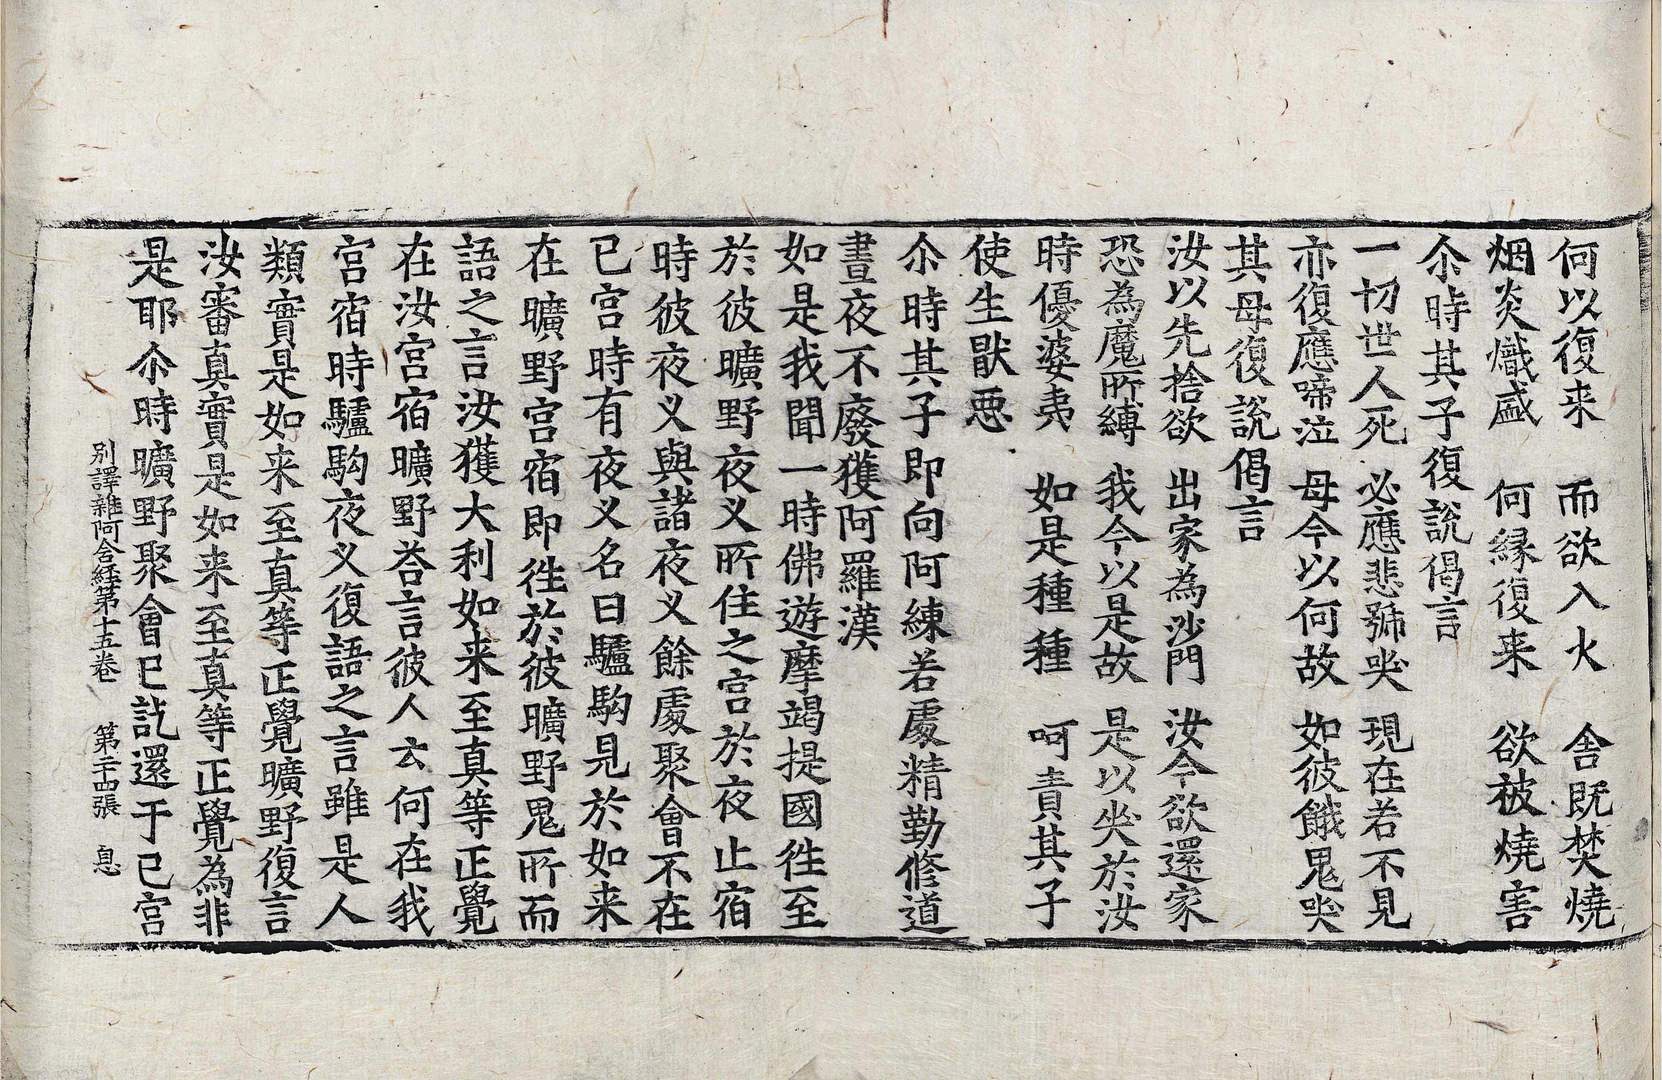 何以復来　而欲入火　舍既焚燒
烟炎熾盛　何縁復来　欲被燒害
尒時其子復說偈言
一切世人死　必應悲號哭　現在若不見
亦復應啼泣　母今以何故　如彼餓鬼哭
其母復說偈言
汝以先捨欲　出家為沙門　汝今欲還家
恐為魔所縛　我今以是故　是以哭於汝
時優婆夷　如是種種　呵責其子
使生猒惡
尒時其子即向阿練若處精勤修道
晝夜不廢獲阿羅漢
如是我聞一時佛遊摩竭提國徃至
於彼曠野夜义所住之宫於夜止宿
時彼夜义與諸夜义餘處聚會不在
已宫時有夜义名曰驢駒見於如来
在曠野宫宿即徃於彼曠野鬼所而
語之言汝獲大利如来至真等正覺
在汝宫宿曠野荅言彼人云何在我
宫宿時驢駒夜义復語之言雖是人
類實是如来至真等正覺曠野復言
汝審真實是如来至真等正覺為非
是耶尒時曠野聚會已訖還于已宫
别譯雜阿含経第十五卷　第二十四張　息